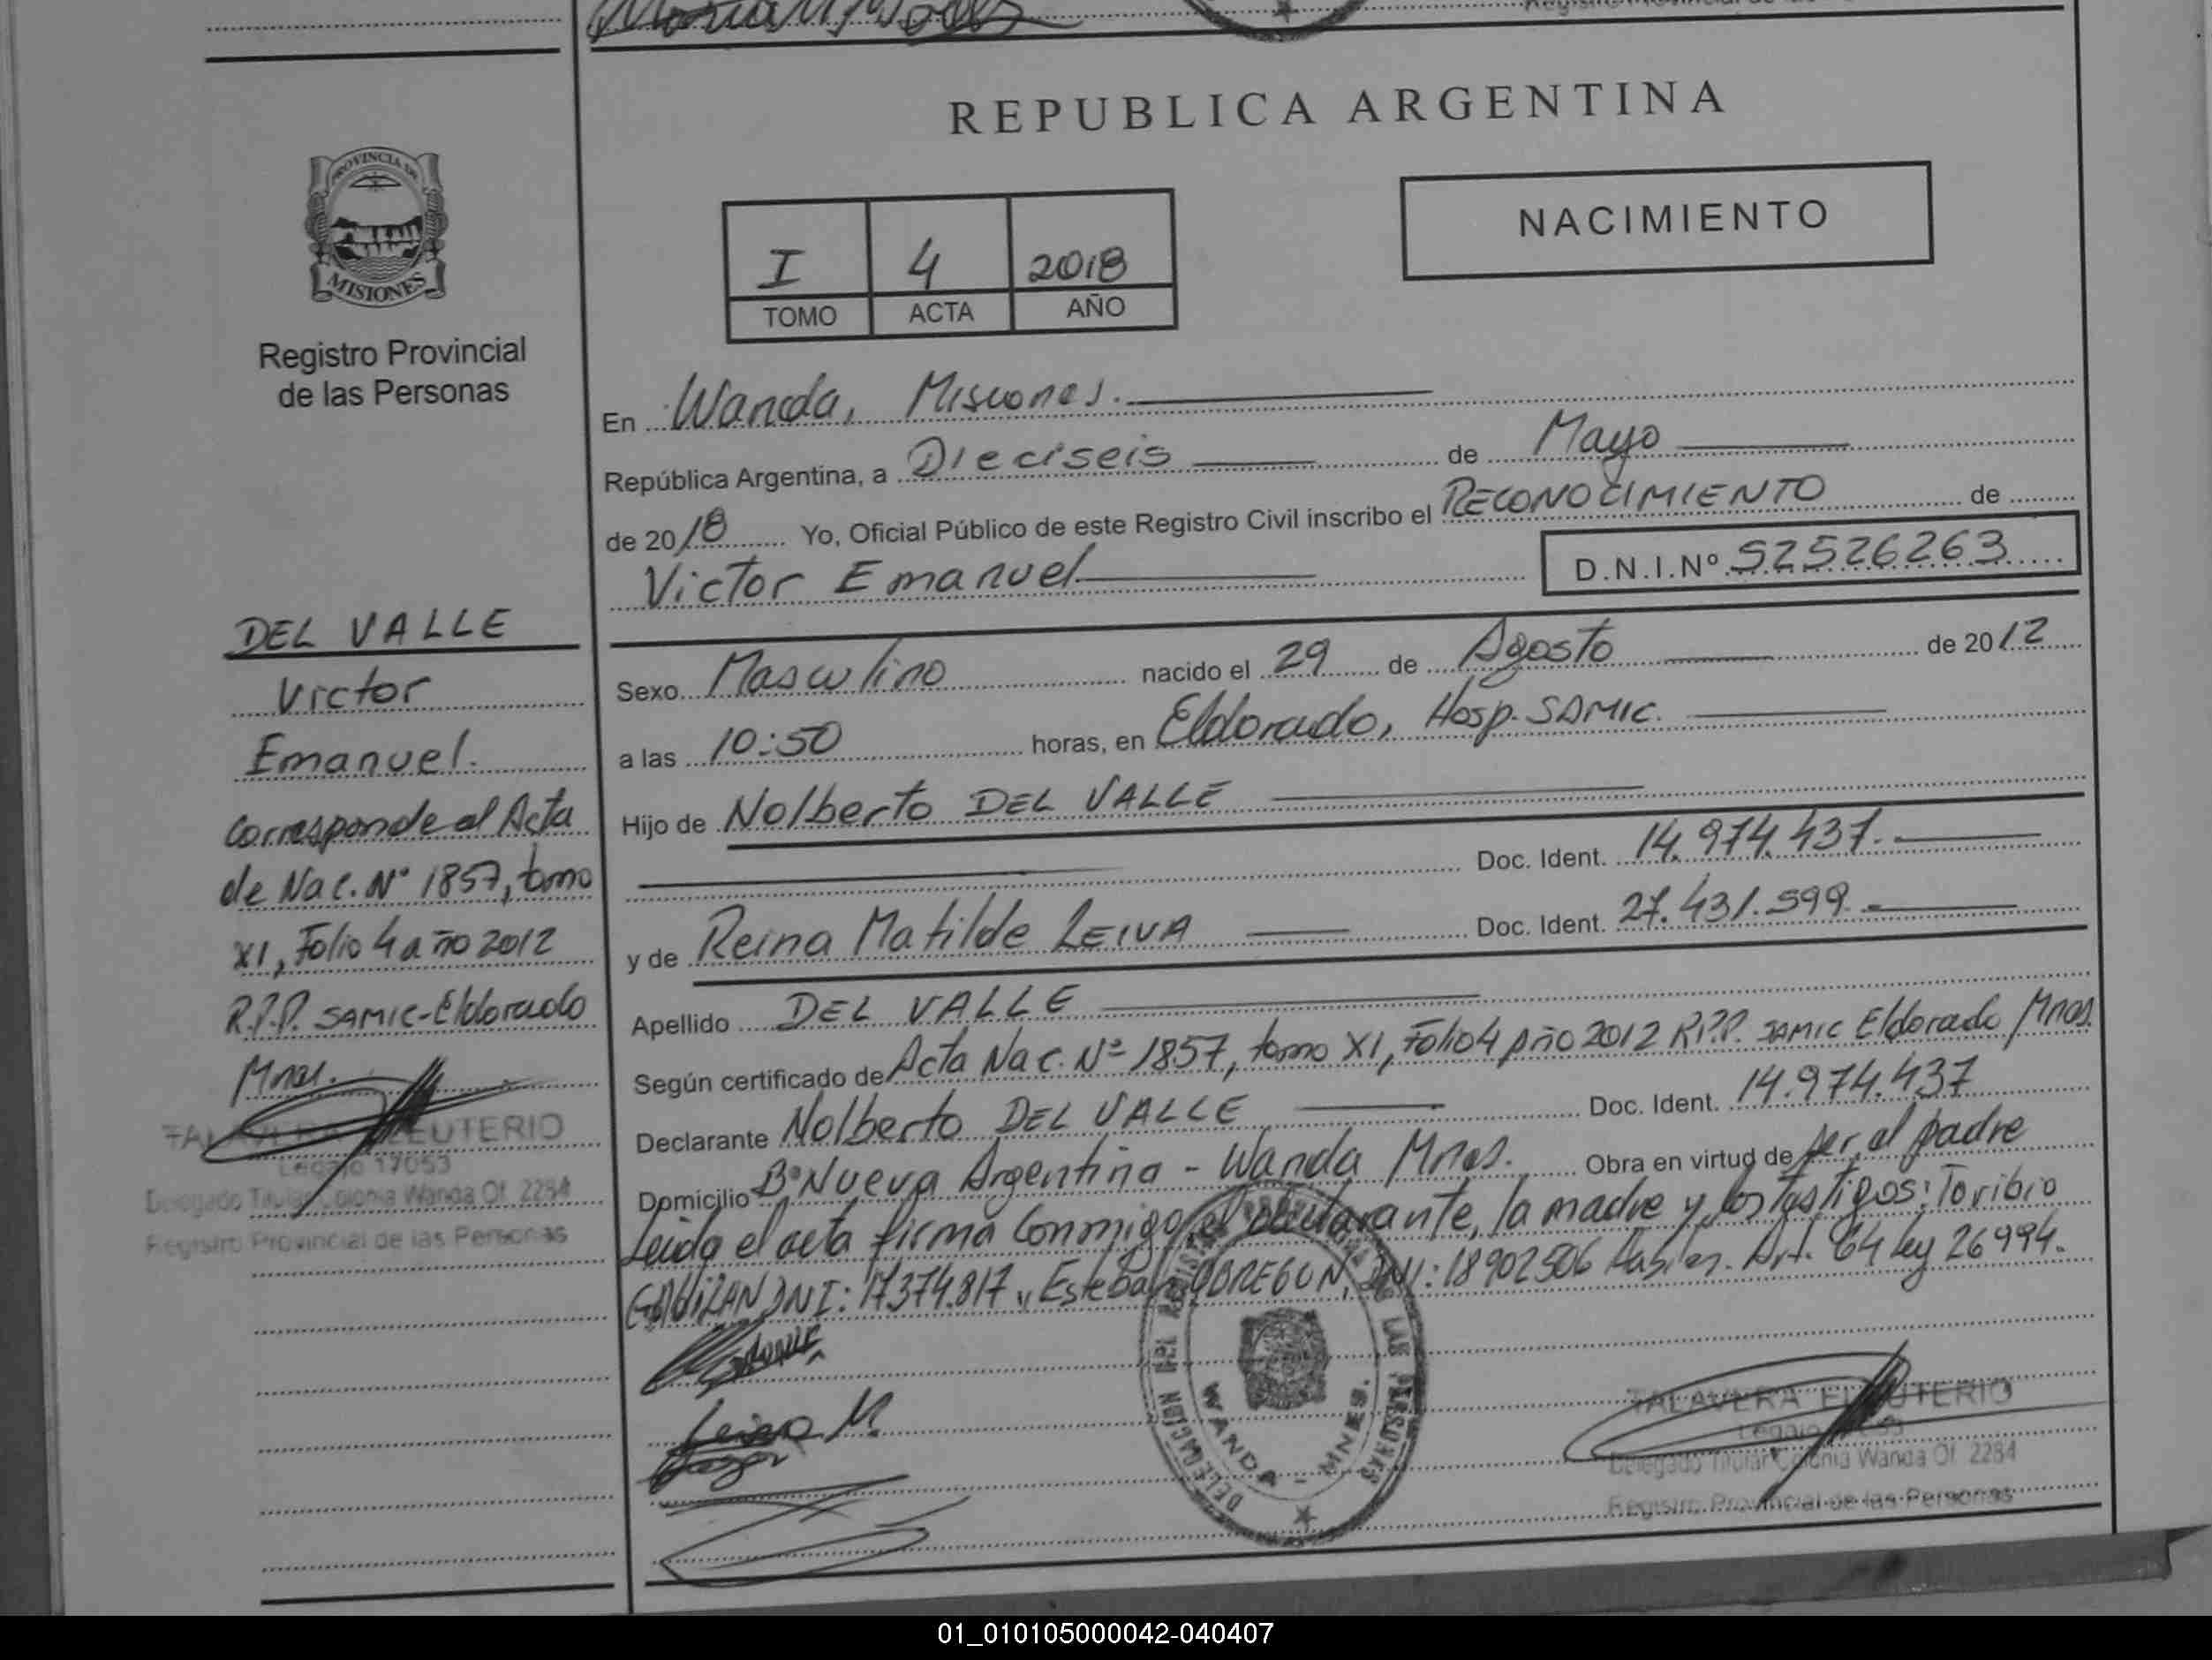 REPUBLICA ARGENTINA
PROVINCIA DE
MISIONES
Registro Provincial
de las Personas
NACIMIENTO
I 4 2018
TOMO ACTA AÑO
En Wanda, Misiones.
República Argentina, a Dieciseis de Mayo
de 2018 Yo, Oficial Público de este Registro Civil inscribo el RECONOCIMIENTO de
Victor Emanuel D.N.I.Nº 52526263
DEL VALLE
Victor
Emanuel.
Corresponde al Acta
de Nac. Nº 1857, tomo
XI, Folio 4 año 2012
R.P.P. SAMIC-Eldorado
Mnes.
TALAVERA ELEUTERIO
Legajo 17053
Delegado Titular Colonia Wanda Of. 2284
Registro Provincial de las Personas
Sexo Masculino nacido el 29 de Agosto de 2012
a las 10:50 horas, en Eldorado, Hosp. SAMIC.
Hijo de Nolberto DEL VALLE
Doc. Ident. 14.974.437.
y de Reina Matilde LEIVA Doc. Ident. 27.431.599.
Apellido DEL VALLE
Según certificado de Acta Nac. Nº 1857, tomo XI, Folio 4 Año 2012 R.P.P. SAMIC Eldorado Mnes.
Declarante Nolberto DEL VALLE Doc. Ident. 14.974.437
Domicilio Bº Nueva Argentina - Wanda Mnes. Obra en virtud de ser el padre
Leida el acta firma conmigo el declarante, la madre y los testigos: Toribio
DNI: 17.374.817 y Esteban OBREGON, DNI: 18902506 Art. 64 ley 26994.
Leiva M.
DELEGACION DEL REGISTRO PROVINCIAL DE LAS PERSONAS
WANDA - MNES.
TALAVERA ELEUTERIO
Legajo 17053
Delegado Titular Colonia Wanda Of. 2284
Registro Provincial de las Personas
01_010105000042-040407